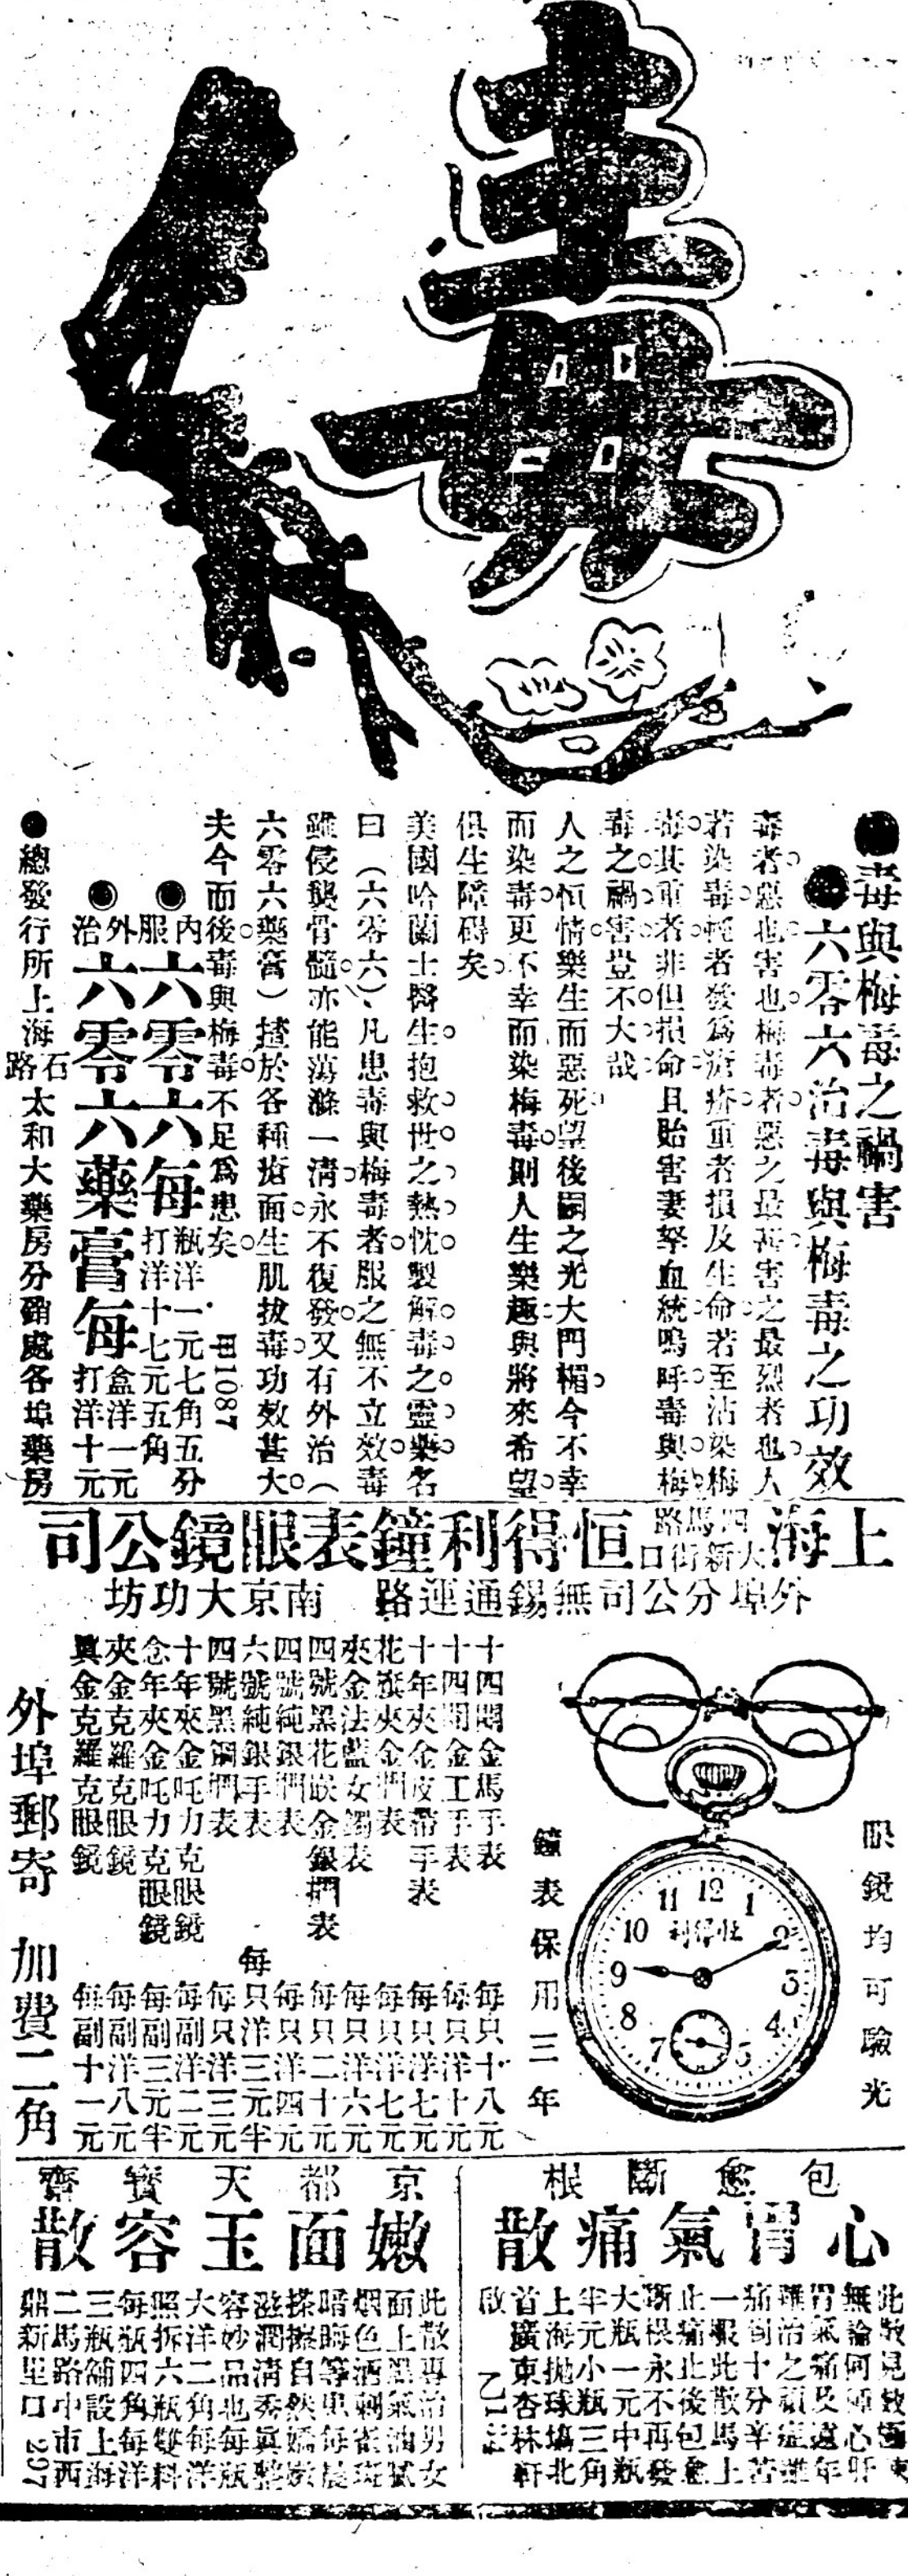 毒
●毒與梅毒之禍害
●六零六治毒與梅毒之功效
毒者惡也害也梅毒者惡之最毒害之最烈者也人
若染毒輕者發為瘡疥重者損及生命若至沾染梅
毒其重者非但損命且貽害妻孥血統嗚呼毒與梅
毒之禍害豈不大哉
人之恒情樂生而惡死望後嗣之光大門楣今不幸
而染毒更不幸而染梅毒則人生樂趣與將來希望
俱生障碍矣
美國哈蘭士醫生抱救世之熱忱製解毒之靈藥名
曰（六零六）凡患毒與梅毒者服之無不立效毒
雖侵襲骨髓亦能蕩滌一清永不復發又有外治（
六零六藥膏）搽於各種瘡面生肌拔毒功效甚大
夫今而後毒與梅毒不足為患矣 甲1087
◉內服六零六每瓶洋一元七角五分打洋十七元五角
◉外治六零六藥膏每盒洋一元打洋十元
●總發行所上海石路太和大藥房分銷處各埠藥房
上海四馬路大新街口恒得利鐘表眼鏡公司
外埠分公司無錫通運路 南京大功坊
眼鏡均可驗光
鐘表保用三年
利得恒
11 12 1
10 2
9 3
8 4
7 5
十四開金馬手表 每只十八元
十四開金工手表 每只洋十元
十年夾金皮帶手表 每只洋七元
花旗夾金們表 每只洋七元
夾金法藍女鐲表 每只洋六元
四號黑花嵌金銀捫表 每只二十元
四號純銀捫表 每只洋四元
六號純銀手表 每只洋三元半
四號黑鋼捫表 每只洋三元
十年夾金吒力克眼鏡 每副洋二元
念年夾金吒力克眼鏡 每副三元半
夾金克羅克眼鏡 每副洋八元
真金克羅克眼鏡 每副十一元
外埠郵寄 加費二角
包愈斷根
心胃氣痛散
無論何種心肝
胃氣痛及遠年
難治之頑症雖
痛到十分辛苦
一服此散馬上
止痛止後包愈
斷根永不再發
大瓶一元中瓶
半元小瓶三角
上海拋球塲北
首廣東杏林軒
啟
京都天寶齋
嫩面玉容散
此散專治男女
面上黑氣油膩
烟色酒刺雀斑
暗晦等患每晨
搽擦自然嬌嫩
滋潤清秀真整
容妙品也每瓶
大洋二角每洋
照拆六瓶雙料
每瓶四角每洋
三瓶舖設上海
二馬路中市西
鼎新里口 297